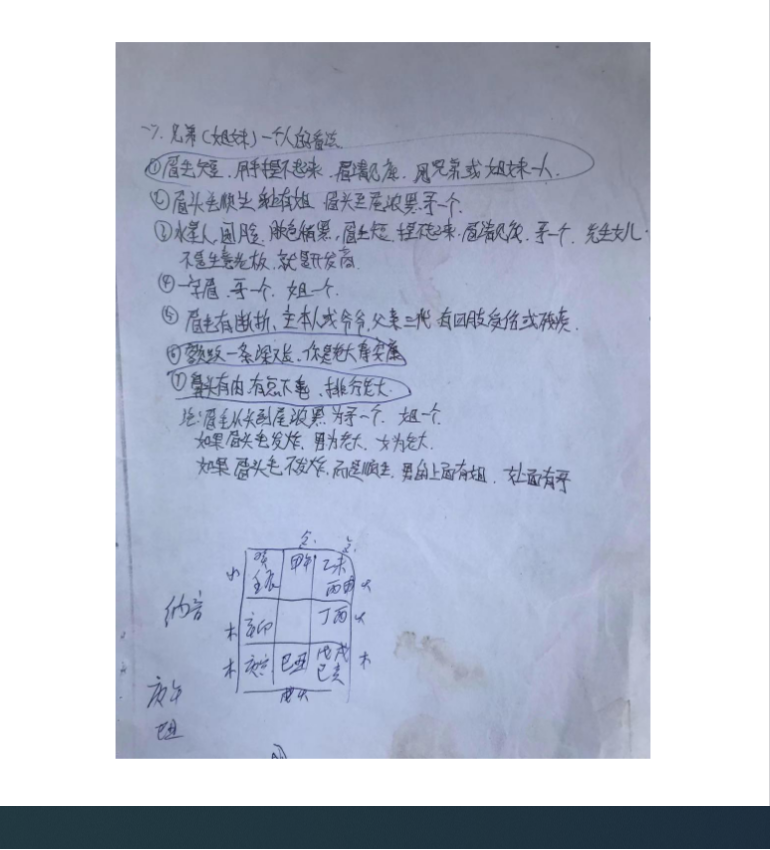 一7. 兄弟(姐妹)一个人的看法
①眉毛短，用手捏不起来，眉清见底，男兄弟或姐妹一人、
②眉头毛顺生，独有姐 眉头至尾浓黑，哥一个.
③水星人，圆脸，肤色偏黑，眉毛短，捏不起来，眉清见底，哥一个，先生女儿.
不是生意老板，就是开发商
④一字眉，哥一个，姐一个.
⑤眉毛有断折，主本人或爷爷，父亲三代 有四肢受伤或残疾.
⑥额头一条深纹，你是老大有实属
⑦鼻头有肉，有点下垂，排行老大.
注：眉毛从头到尾浓黑，为哥一个，姐一个.
如果眉头毛发炸，男为老大，女为老大.
如果眉头毛不发炸，而是顺生，男的上面有姐，女上面有哥
金 金
水 壬辰 甲午 乙未
丙申 火
纳音
木 辛卯 丁酉 火
木 庚寅 己丑 戊戌 木
己亥
庚午